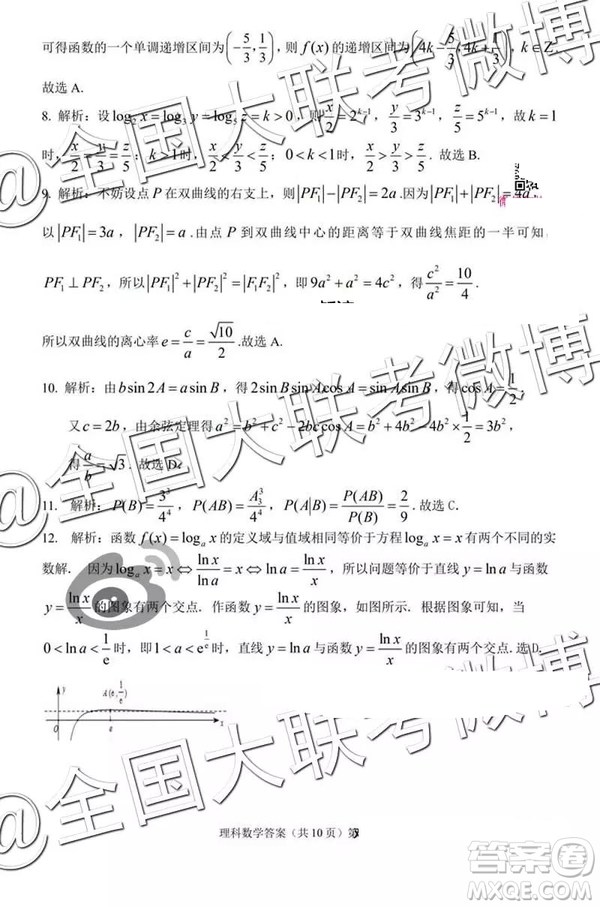 可得函数的一个单调递增区间为(-5/3, 1/3)，则 f(x) 的递增区间为(4k-5/3, 4k+1/3)，k∈Z.
故选 A.
8. 解析：设 log₂x=log₃y=log₅z=k>0，则 x/2=2^(k-1)，y/3=3^(k-1)，z/5=5^(k-1)，故 k=1
时，x/2=y/3=z/5；k>1时，x/2<y/3<z/5；0<k<1时，x/2>y/3>z/5．故选 B．
9. 解析：不妨设点 P 在双曲线的右支上，则|PF₁|-|PF₂|=2a.因为|PF₁|+|PF₂|=4a，
以|PF₁|=3a，|PF₂|=a.由点 P 到双曲线中心的距离等于双曲线焦距的一半可知，
PF₁⊥PF₂，所以|PF₁|²+|PF₂|²=|F₁F₂|²，即9a²+a²=4c²，得c²/a²=10/4.
所以双曲线的离心率e=c/a=√10/2.故选 A.
10. 解析：由bsin2A=asinB，得2sinBsinAcosA=sinAsinB，得cosA=1/2.
又c=2b，由余弦定理得a²=b²+c²-2bccosA=b²+4b²-4b²×1/2=3b²，
得a/b=√3．故选 D．
11. 解析：P(B)=3³/4⁴，P(AB)=A₃³/4⁴，P(A|B)=P(AB)/P(B)=2/9.故选 C.
12. 解析：函数 f(x)=logₐx 的定义域与值域相同等价于方程 logₐx=x 有两个不同的实
数解．因为logₐx=x⇔lnx/lna=x⇔lna=lnx/x，所以问题等价于直线 y=lna与函数
y=lnx/x的图象有两个交点．作函数y=lnx/x的图象，如图所示．根据图象可知，当
0<lna<1/e时，即1<a<e^(1/e)时，直线 y=lna与函数 y=lnx/x的图象有两个交点．选 D．
y
A(e,1/e)
O
e
x
理科数学答案（共10页）第
@全国大联考微博
@全国大联考微博
@全国大联考微博
答案圈
MXQE.COM